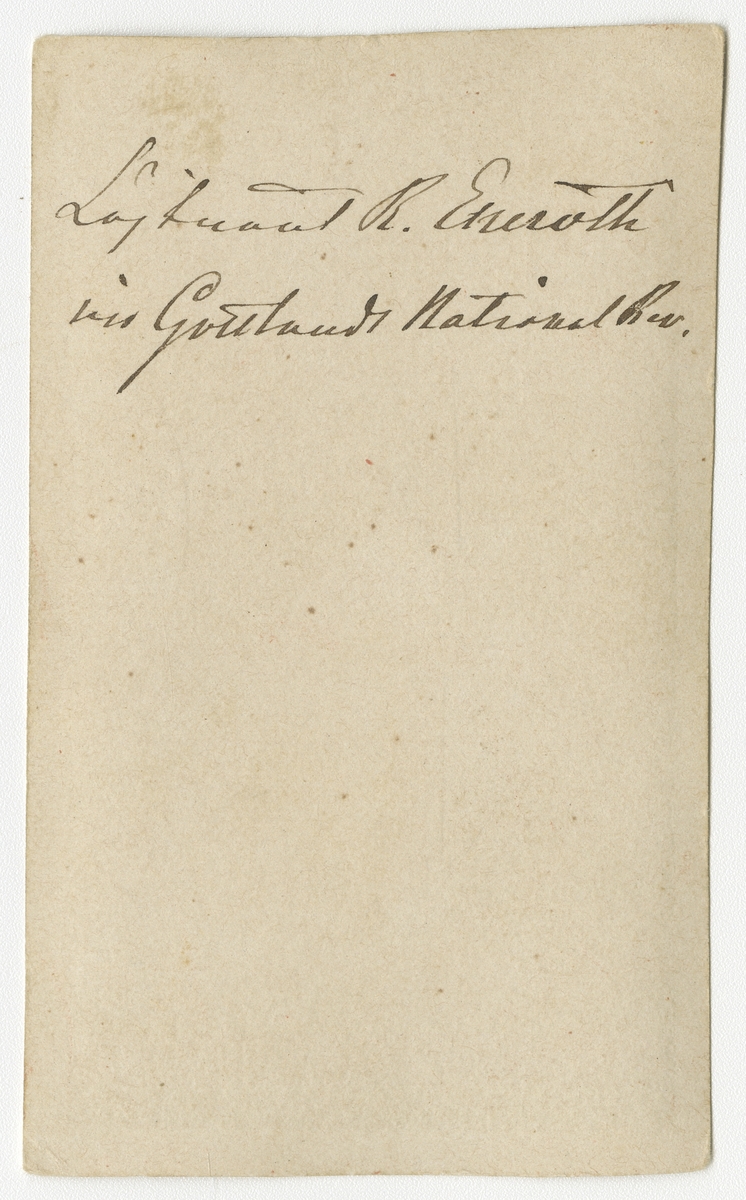 Löjtnant R. Eneroth
vid Gottlands National Bev.